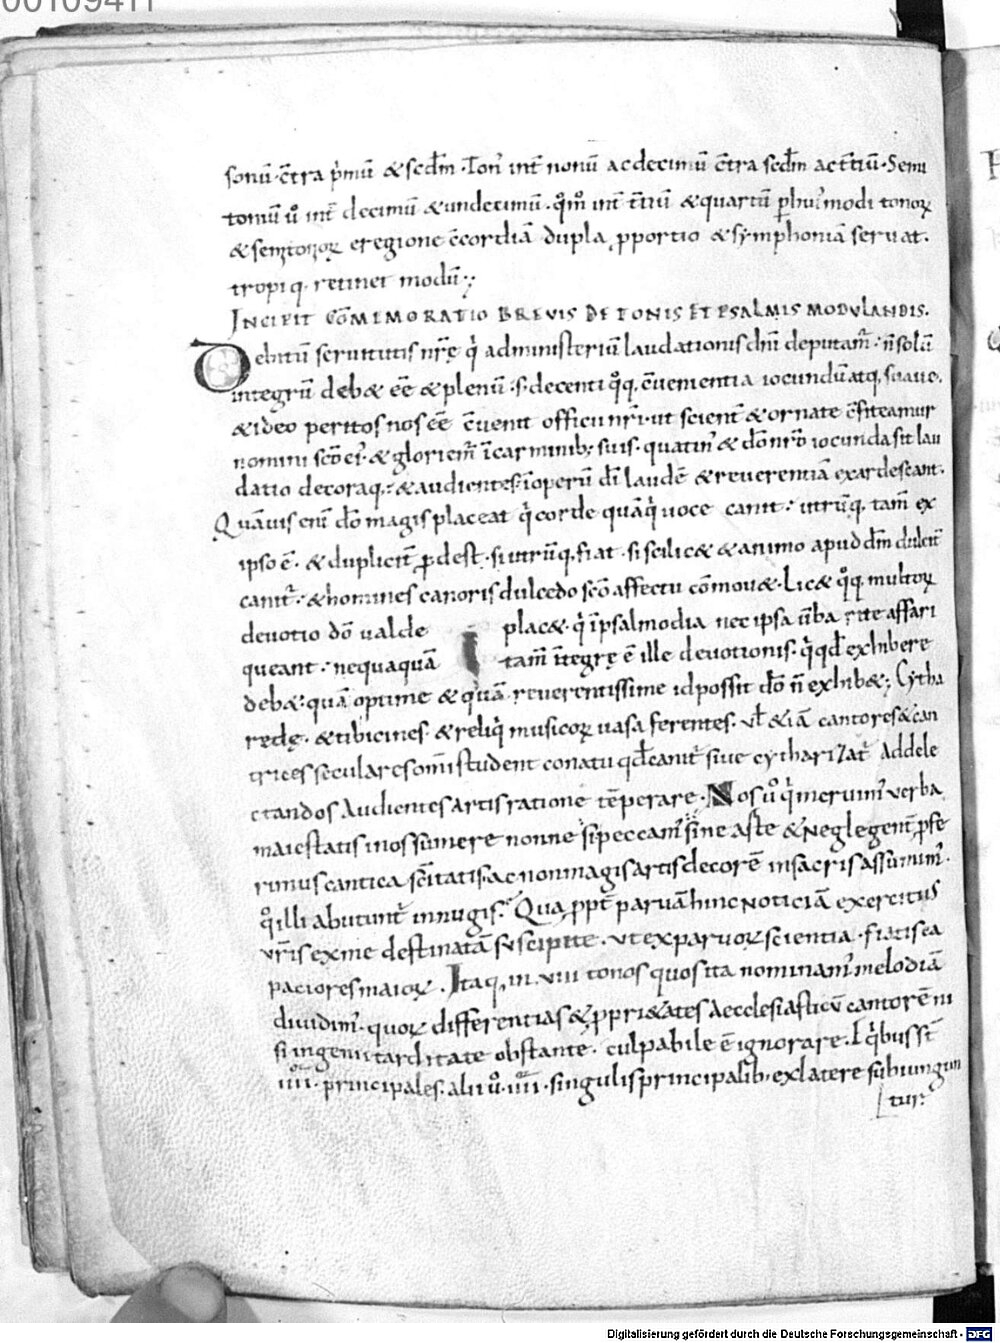 00109411
sonū · c̄tra p̄mū & sc̄dm · Ton᷒ int̄ nonū ac decimū c̄tra sc̄dm ac t̄tiū · Semi
toniū ů int̄ decimū & undecimū · qm̊ int̄ t̄tiū & quartū p hui᷒ modi tonoꝝ
& semitonoꝝ e regione c̄cordiā dupla pportio & symphoniā seruat ·
tropiq · retinet modū ;
INCIPIT CŌMEMORATIO BREVIS DE TONIS ET PSALMIS MODVLANDIS .
Debitū seruitutis nr̄ę qi̇ administeriū laudationis dn̄i deputam᷒ · n̄ solū
integrū debet eē & plenū · s; decenti qq̊ · c̄uenientia iocundū atq, suaue.
& ideo peritos nos eē c̄uenit officii nr̄i · ut scient̄ & ornate c̄fiteamur
nomini sc̄o ei᷒ · & gloriem᷒ ī carminib; suis · quatin᷒ & dō nr̄o iocunda sit lau
datio decoraq, · & audientes ī operū dī laudē & reuerentiā exardescant ·
Quāuis eni dō magis placeat qi̇ corde quā qi̇ uoce canit · utrūq, tam̄ ex
ipso ē · & duplicit̄ pdest · si utrūq, fiat · si scilicet & animo apud dm̄ dulcit̄
canit᷒ · & homines canoris dulcedo sc̄o affectu cōmouet · Licet qq̊, multoꝝ
deuotio dō ualde placet · qi̇ ī psalmodia nec ipsa uba rite affari
queant · nequaquā tam̄ ītegrę ē ille deuotionis · qi̇ qd̄ exhibere
debet · quā optime & quā reuerentissime id possit dō n̄ exhibet ; Cytha
redę · & tibicines · & reliqi̇ musicoꝝ uasa ferentes · ul̄ & iā cantores & can
trices seculares omī student conatu qd̄ canit᷒ siue cytharizat᷒ Ad dele
ctandos Audientes artis ratione tēperare · Nos ů qi̇ meruim᷒ verba
maiestatis in os sumere nonne si peccam᷒ sine aste & Neglegent̄ pfe
rimus cantica sc̄itatis · ac non magis artis decorē in sacris assumim᷒ ·
qo̊ illi abutunt᷒ in nugis · Qua ppt̄ paruā hinc Noticiā exercitus
vr̄is ex me destinatā suscipite · vt ex paruoꝝ scientia · fiatis ca
paciores maioꝝ · Itaq, in · viii · tonos quos ita nominam᷒ melodiā
diuidim᷒ · quoꝝ differentias & pprietates aecclesiasticū cantorē ni
si ingenii tarditate obstante · culpabile ē ignorare · E qi̇bus st̄
iiii · principales · alii ů · iiii · singulis principalib; ex latere subiungun
tur ·
Digitalisierung gefördert durch die Deutsche Forschungsgemeinschaft · DFG